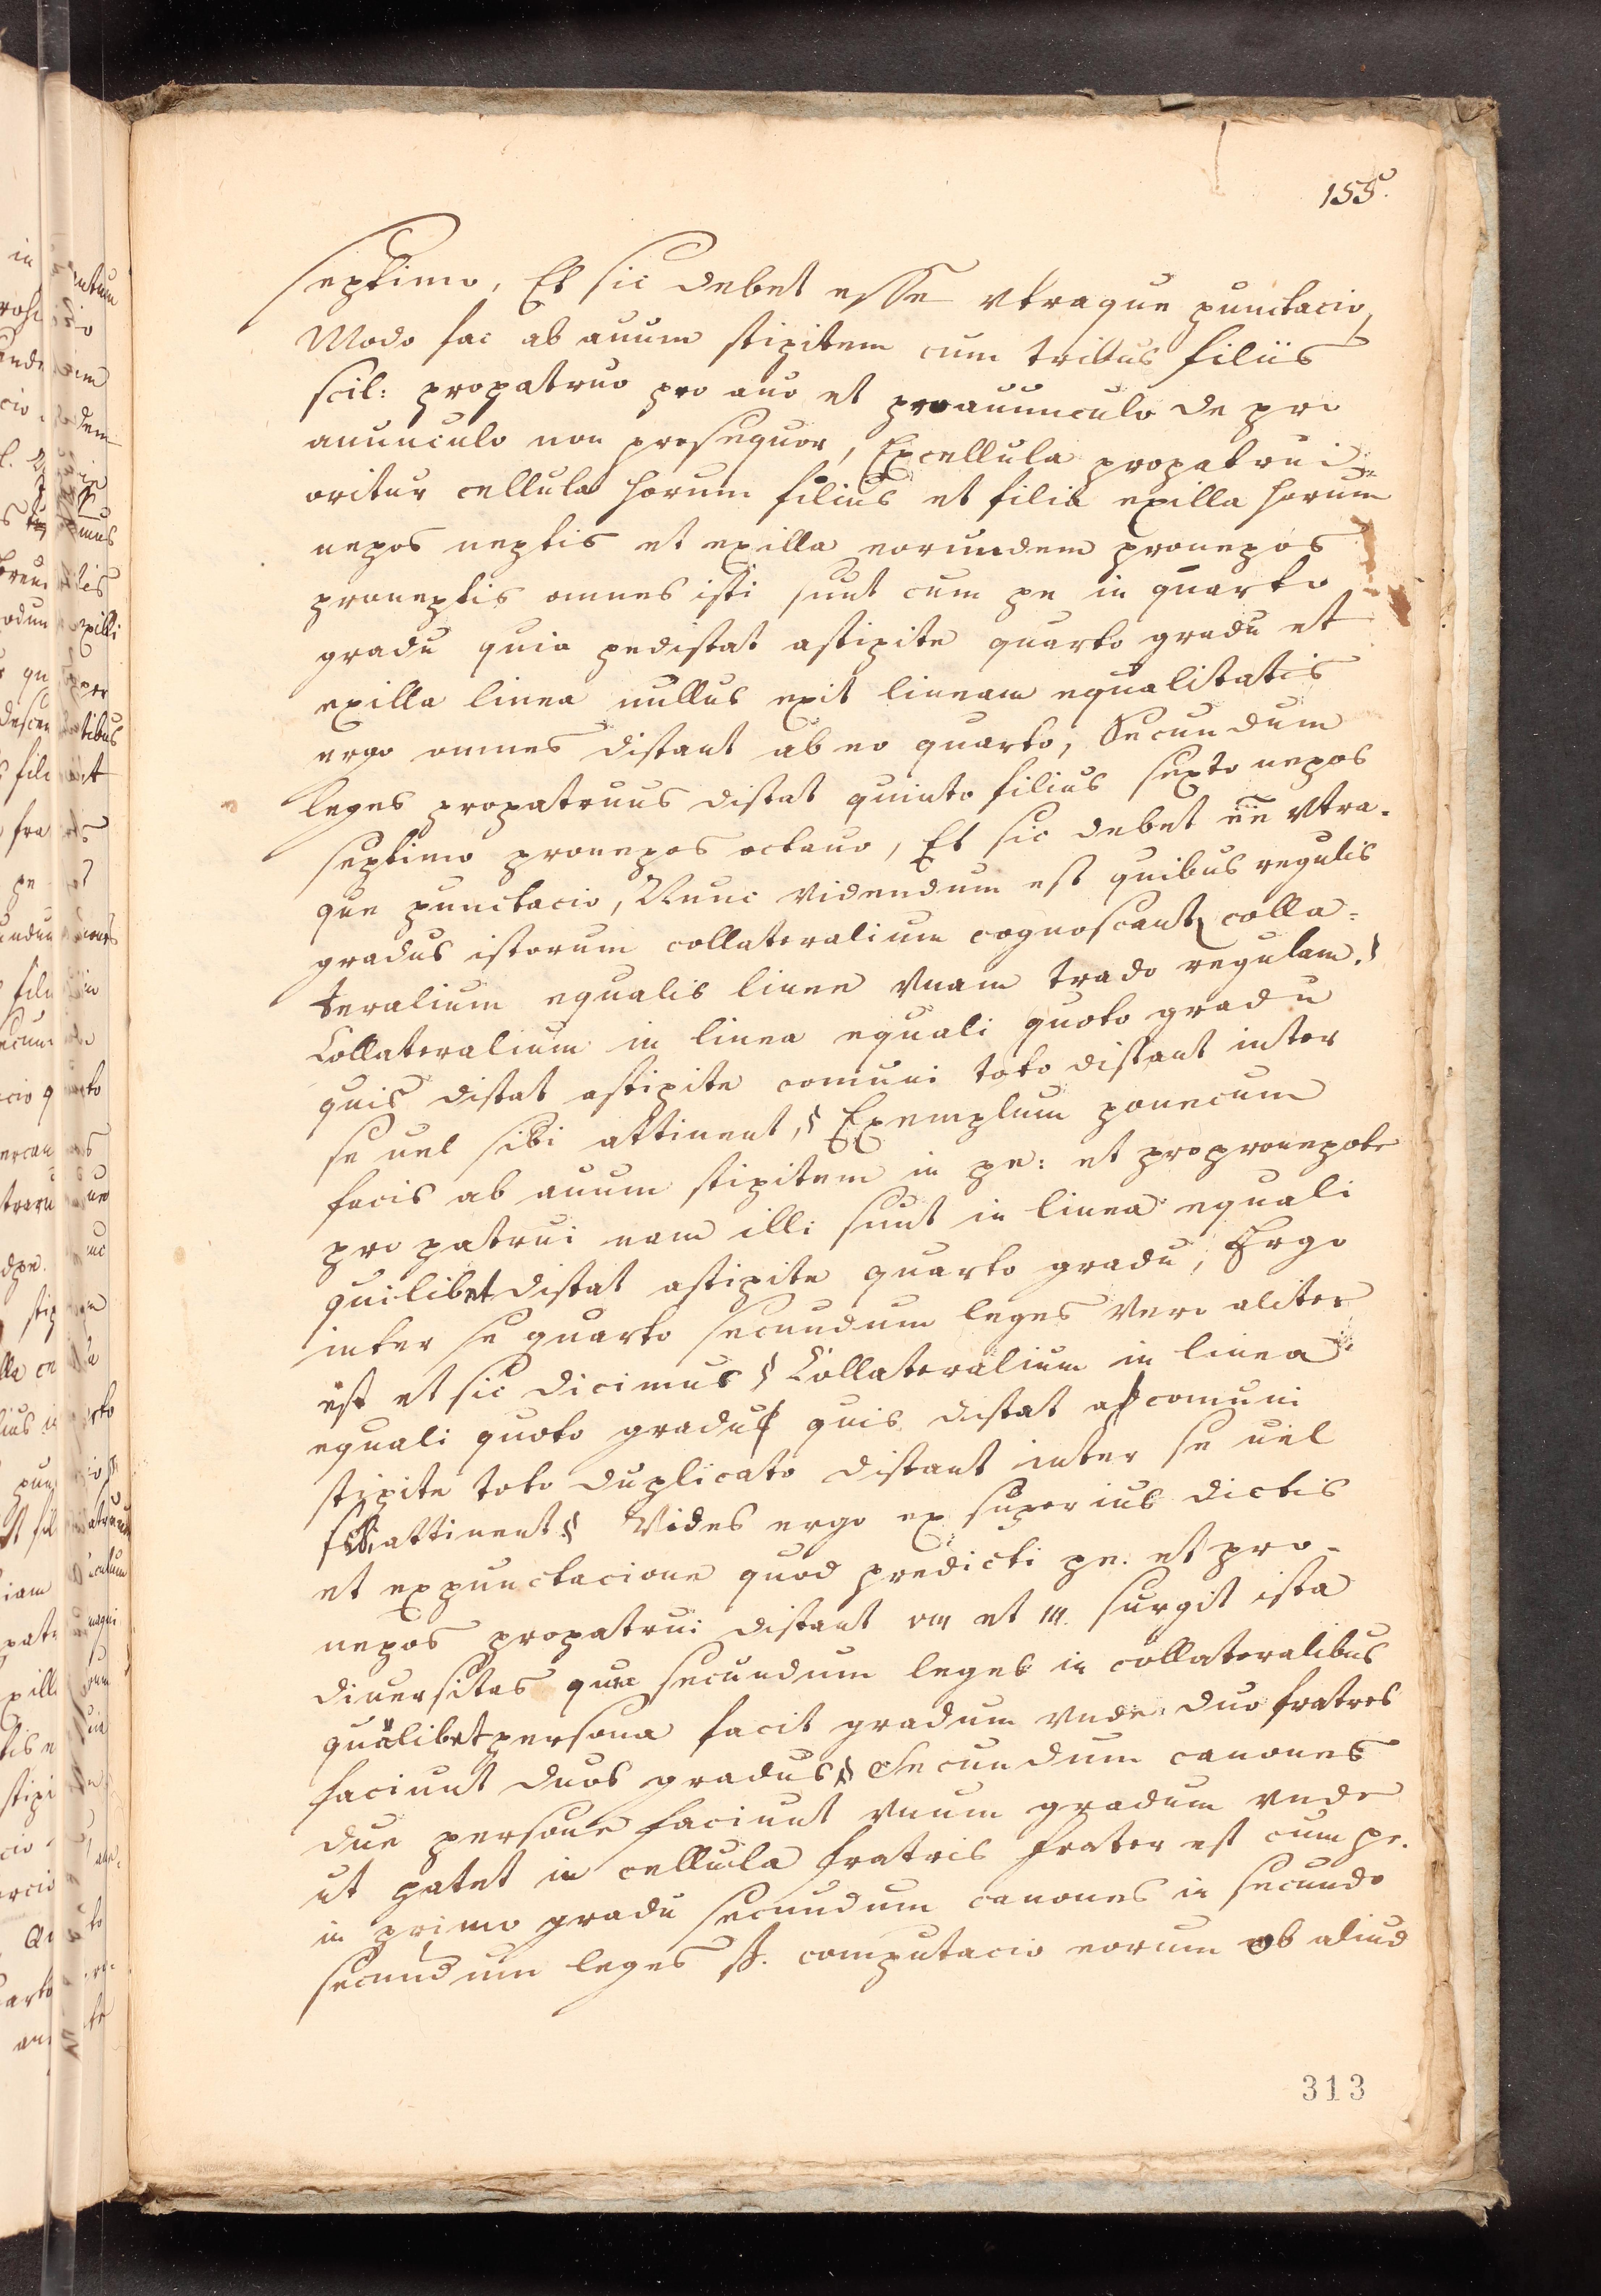 155.
septimo, Et sic debet esse vtraque punctacio,
Modo fac ab auum stipitem cum tribus filiis
scil: propatruo pro auo et proauunculo de pro
auunculo non prosequor, Excellula propatrui
oritur cellula horum filius et filia exilla horum
nepos neptis et exilla eorundem pronepos
proneptis omnes isti sunt cum pe in quarto
gradu quia pe distat astipite quarto gradu et
exilla linea nullus exit lineam equalitatis
ergo omnes distant ab eo quarto, Secundum
leges propatruus distat quinto filius sexto nepos
septimo pronepos octauo, Et sic debet ēē vtra-
que punctacio, Nunc videndum est quibus regulis
gradus istorum collateralium cognoscant colla=
teralium equalis linee vnam trado regulam.
Collateralium in linea equali quoto gradu
quis distat astipite comuni toto distant inter
se uel sibi attinent, § Exemplum ponecum
facis ab auum stipitem in pe: et propronepote
pro patrui nam illi sunt in linea equali
quilibet distat astipite quarto gradu, Ergo
inter se quarto secundum leges vero aliter
est et sic dicimus § Collateralium in linea
equali quoto gradu quis distat a comuni
stipite toto duplicato distant inter se uel
sibi attinent § Vides ergo ex superius dictis
et expunctacione quod predicti pe. et pro-
nepos propatrui distant VIII et IIII. surgit ista
diuersitas quia secundum leges in collateralibus
qualibet persona facit gradum vnde duo fratres
faciunt duos gradus § Secundum canones
due persone faciunt vnum gradum vnde
ut patet in cellula fratris frater est cum pe.
in primo gradu secundum canones in secundo
secundum leges §. computacio eorum ob aliud
313